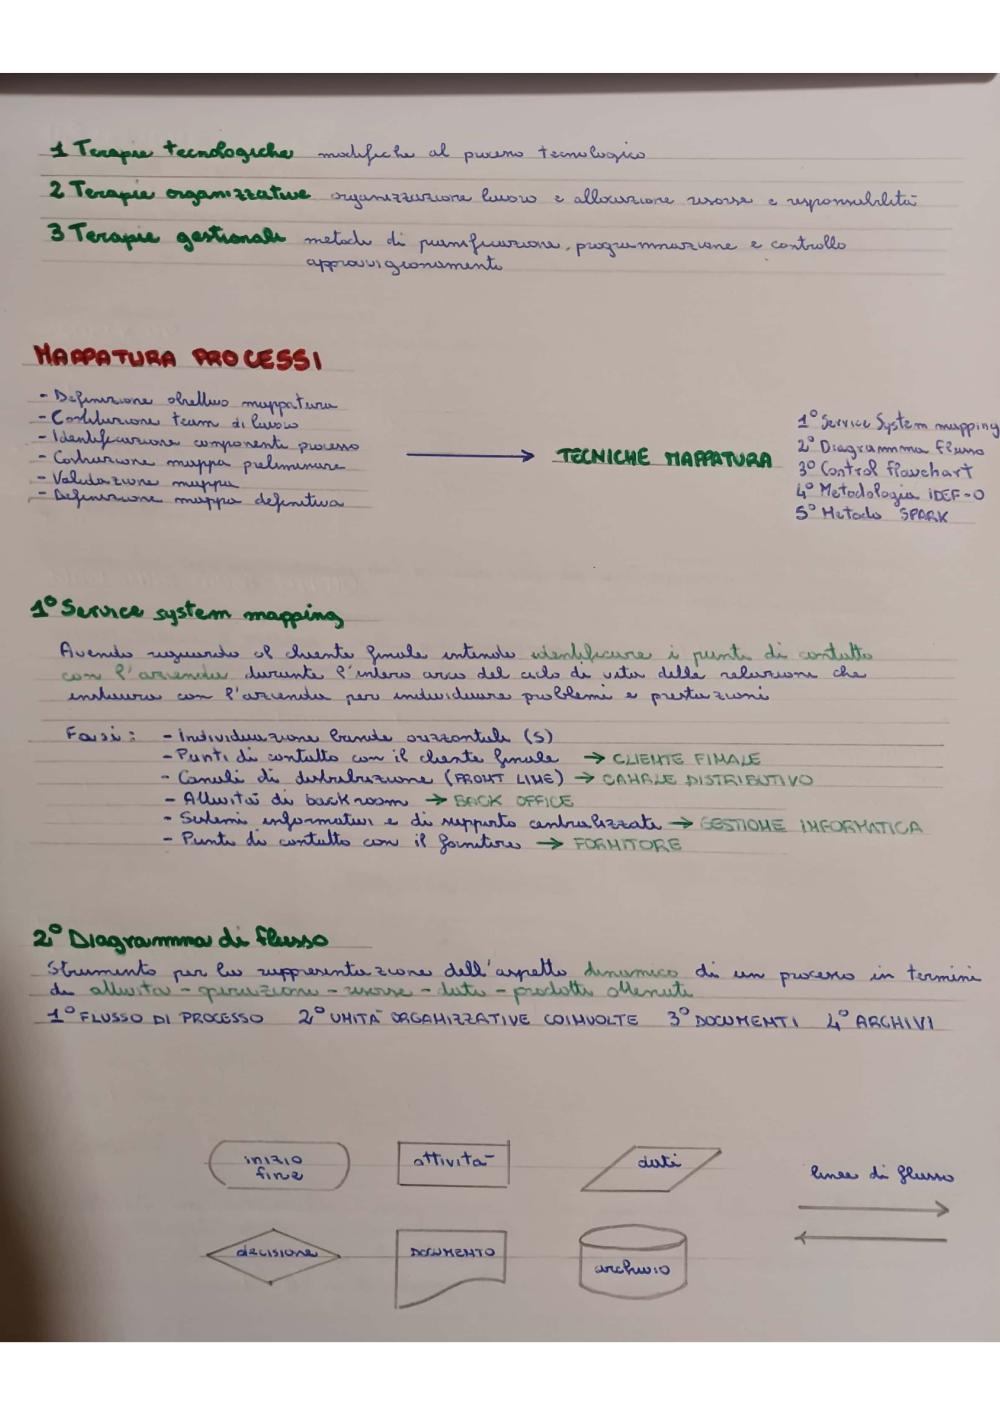 1 Terapie tecnologiche modifiche al processo tecnologico
2 Terapie organizzative organizzazione lavoro e allocazione risorse e responsabilità
3 Terapie gestionali metodi di pianificazione, programmazione e controllo
approvvigionamenti
MAPPATURA PROCESSI
- Definizione obiettivo mappatura
- Costituzione team di lavoro
- Identificazione componenti processo
- Costruzione mappa preliminare
- Valutazione mappa
- Definizione mappa definitiva
TECNICHE MAPPATURA
1° Service System mapping
2° Diagramma flusso
3° Control flowchart
4° Metodologia IDEF-0
5° Metodo SPARK
1° Service system mapping
Avendo riguardo al cliente finale intende identificare i punti di contatto
con l'azienda durante l'intero arco del ciclo di vita della relazione che
instaura con l'azienda per individuare problemi e prestazioni
Fasi: - Individuazione bande orizzontali (5)
- Punti di contatto con il cliente finale → CLIENTE FINALE
- Canali di distribuzione (FRONT LINE) → CANALE DISTRIBUTIVO
- Attività di backroom → BACK OFFICE
- Sistemi informativi e di supporto centralizzate → GESTIONE INFORMATICA
- Punti di contatto con il fornitore → FORNITORE
2° Diagramma di flusso
Strumento per la rappresentazione dell'aspetto dinamico di un processo in termini
di attività - operazioni - risorse - dati - prodotti ottenuti
1° FLUSSO DI PROCESSO 2° UNITÀ ORGANIZZATIVE COINVOLTE 3° DOCUMENTI 4° ARCHIVI
inizio
fine
attività
dati
linee di flusso
decisione
DOCUMENTO
archivio